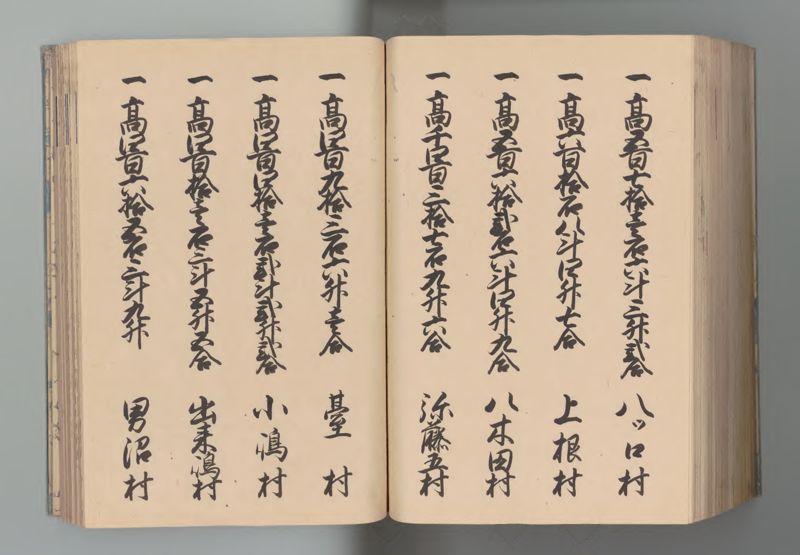 一 高五百七拾壱石六斗三升弐合 八ツ口村
一 高六百拾石八斗四升七合 上根村
一 高五百六拾弐石六斗四升九合 八木田村
一 高千四百三拾七石九升六合 弥藤五村
一 高四百九拾三石六升壱合 臺村
一 高四百四拾壱石弐斗弐升弐合 小嶋村
一 高四百拾壱石三斗五升五合 出来嶋村
一 高四百六拾五石三斗九升 男沼村